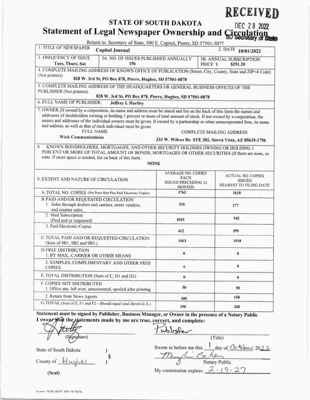 RECEIVED
DEC 28 2022
STATE OF SOUTH DAKOTA
Statement of Legal Newspaper Ownership and Circulation
SD Secretary of State
Return to: Secretary of State, 500 E. Capitol, Pierre, SD 57501-5077
1. TITLE OF NEWSPAPER
Capital Journal
2. DATE 10/01/2022
3. FREQUENCY OF ISSUE
Tues, Thurs, Sat
3A. NO. OF ISSUES PUBLISHED ANNUALLY
156
3B. ANNUAL SUBSCRIPTION
PRICE $ $291.20
4. COMPLETE MAILING ADDRESS OF KNOWN OFFICE OF PUBLICATION (Street, City, County, State and ZIP+4 Code)
(Not printers)
828 W. 3rd St, PO Box 878, Pierre, Hughes, SD 57501-0878
5. COMPLETE MAILING ADDRESS OF THE HEADQUARTERS OR GENERAL BUSINESS OFFICES OF THE
PUBLISHER (Not printers)
828 W. 3rd St, PO Box 878, Pierre, Hughes, SD 57501-0878
6. FULL NAME OF PUBLISHER: Jeffrey L Hartley
7. OWNER (If owned by a corporation, its name and address must be stated and list on the back of this form the names and
addresses of stockholders owning or holding 1 percent or more of total amount of stock. If not owned by a corporation, the
names and addresses of the individual owners must be given. If owned by a partnership or other unincorporated firm, its name
and address, as well as that of each individual must be given.
FULL NAME
COMPLETE MAILING ADDRESS
Wick Communications
333 W. Wilcox Dr. STE 302, Sierra Vista, AZ 85635-1756
8. KNOWN BONDHOLDERS, MORTGAGES, AND OTHER SECURITY HOLDERS OWNING OR HOLDING 1
PERCENT OR MORE OF TOTAL AMOUNT OF BONDS, MORTGAGES OR OTHER SECURITIES (If there are none, so
state. If more space is needed, list on back of this form.
NONE
9. EXTENT AND NATURE OF CIRCULATION
AVERAGE NO. COPIES
EACH
ISSUED PRECEDING 12
MONTHS
ACTUAL NO. COPIES
ISSUED
NEAREST TO FILING DATE
A. TOTAL NO. COPIES
1618
B. PAID AND/OR REQUESTED CIRCULATION
1. Sales through dealers and carriers, street vendors,
and counter sales
216
177
2. Mail Subscription
(Paid and/or requested)
1035
942
3. Paid Electronic Copies
412
399
C. TOTAL PAID AND/OR REQUESTED CIRCULATION
(Sum of 9B1, 9B2 and 9B3.)
1663
1518
D. FREE DISTRIBUTION
1. BY MAIL, CARRIER OR OTHER MEANS
0
0
2. SAMPLES, COMPLIMENTARY AND OTHER FREE
COPIES
0
0
E. TOTAL DISTRIBUTION (Sum of C, D1 and D2)
0
0
F. COPIES NOT DISTRIBUTED
1. Office use, left over, unaccounted, spoiled after printing
50
50
2. Return from News Agents
100
150
200
Statement must be signed by Publisher, Business Manager, or Owner in the presence of a Notary Public
I swear that the statements made by me are true, correct, and complete:
Publisher
(Signature)
(Title)
State of South Dakota )
)
County of Hughes )
§
Sworn to before me this 1 day of October 2022
Notary Public
(Seal)
My commission expires: 2-19-27